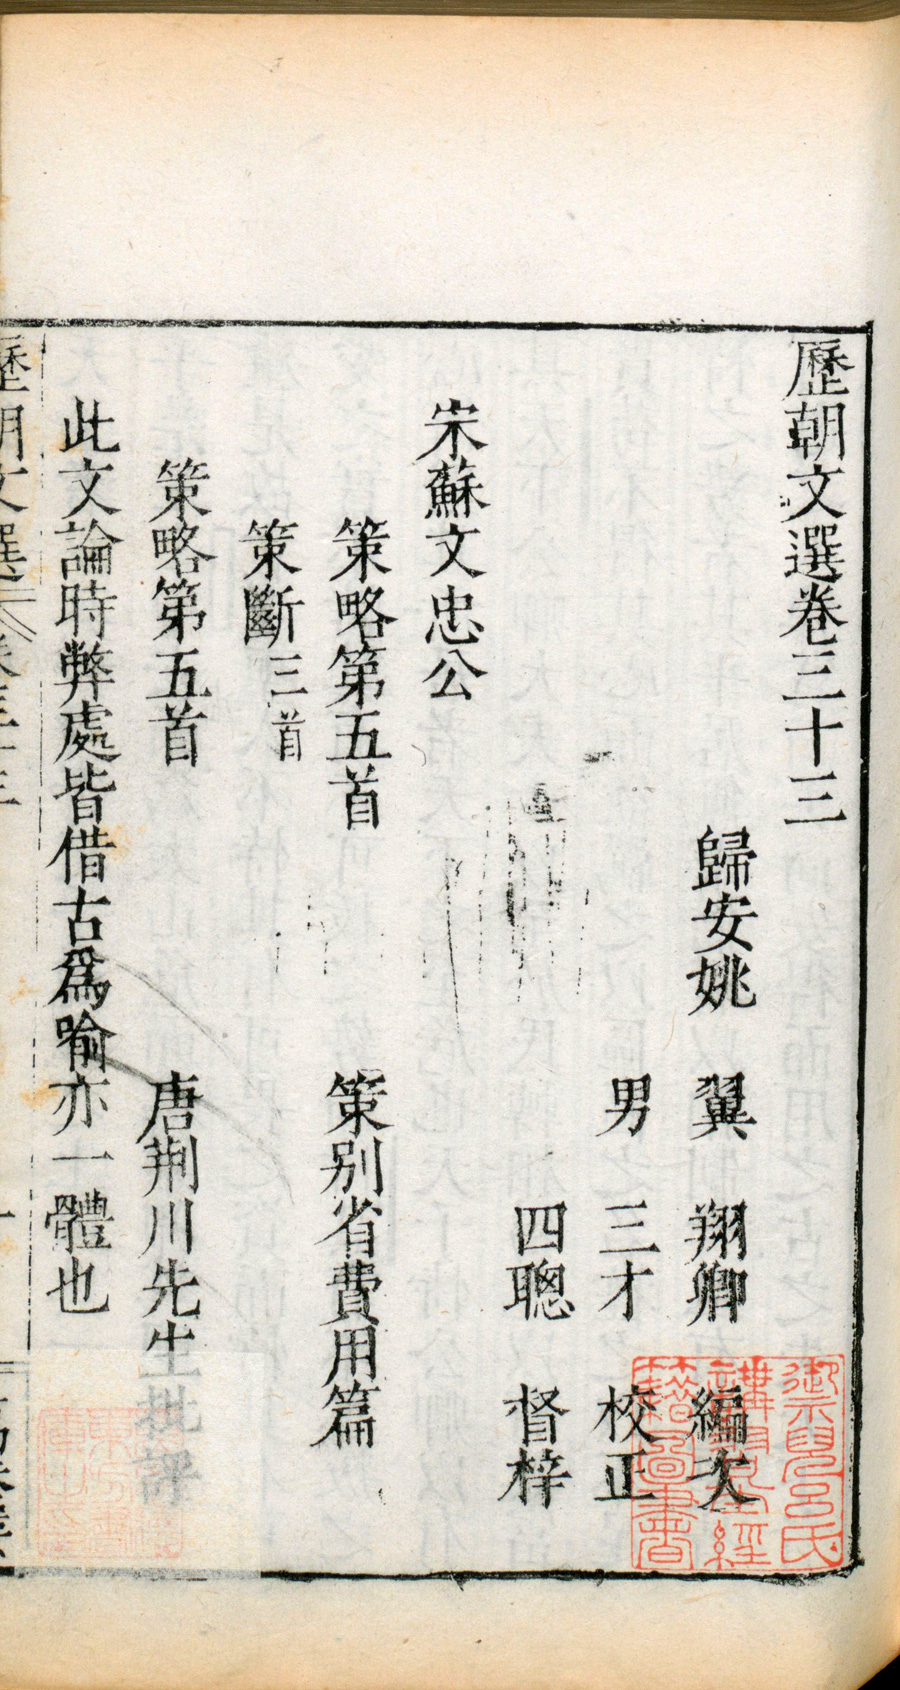 歷朝文選卷三十三
歸安姚　翼　翔卿　編次
男　三才　校正
四聰　督梓
宋蘇文忠公
策略第五首　策別省費用篇
策斷三首
策略第五首　唐荆川先生批評
此文論時弊處皆借古爲喻亦一體也